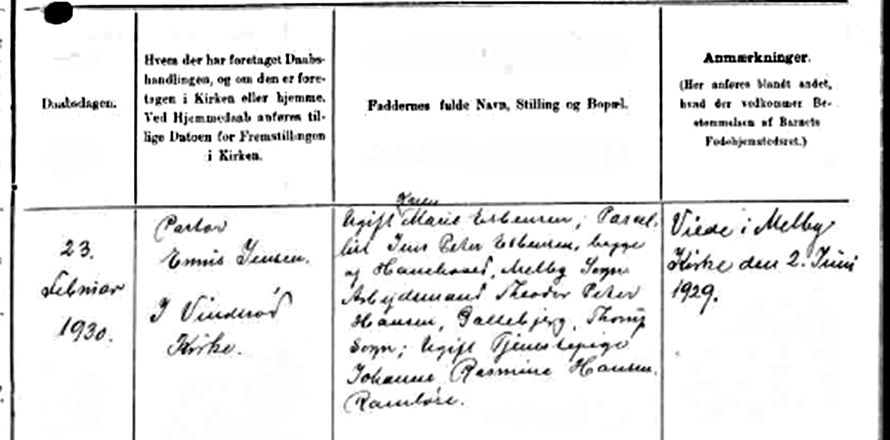 Daabsdagen.
Hvem der har foretaget Daabs-
handlingen, og om den er fore-
tagen i Kirken eller hjemme.
Ved Hjemmedaab anføres til-
lige Datoen for Fremstillingen
i Kirken.
Faddernes fulde Navn, Stilling og Bopæl.
Anmærkninger.
(Her anføres blandt andet,
hvad der vedkommer Be-
stemmelsen af Barnets
Fødehjemstedsret.)
23.
Februar
1930.
Pastor
Ennis Jensen.
I Vinderød
Kirke.
Karen
Ugift Marie Esbensen, Parcel-
list Jens Peter Esbensen, begge
af Hanehoved, Melby Sogn
Arbejdsmand Theodor Peter
Hansen, Thorup
Sogn; Ugift Tjenestepige
Johanne Rasmine Hansen,
Ramløse.
Viede i Melby
Kirke den 2. Juni
1929.